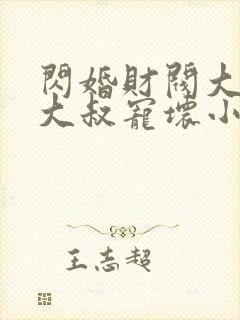 閃婚財閥大
大叔寵壞小
王志超